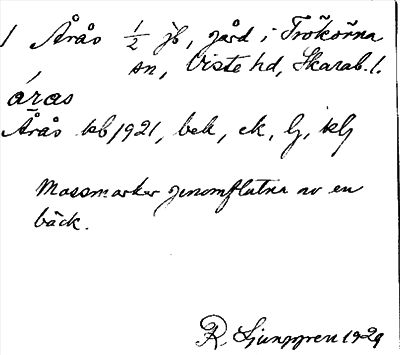 1 Årås ½ jb, gård i Trökörna
sn, Viste hd, Skarab. l.
áras
Årås kb 1921, bek, ek, lj, klj
Mossmarker genomflutna av en
bäck.
R. Ljunggren 1929